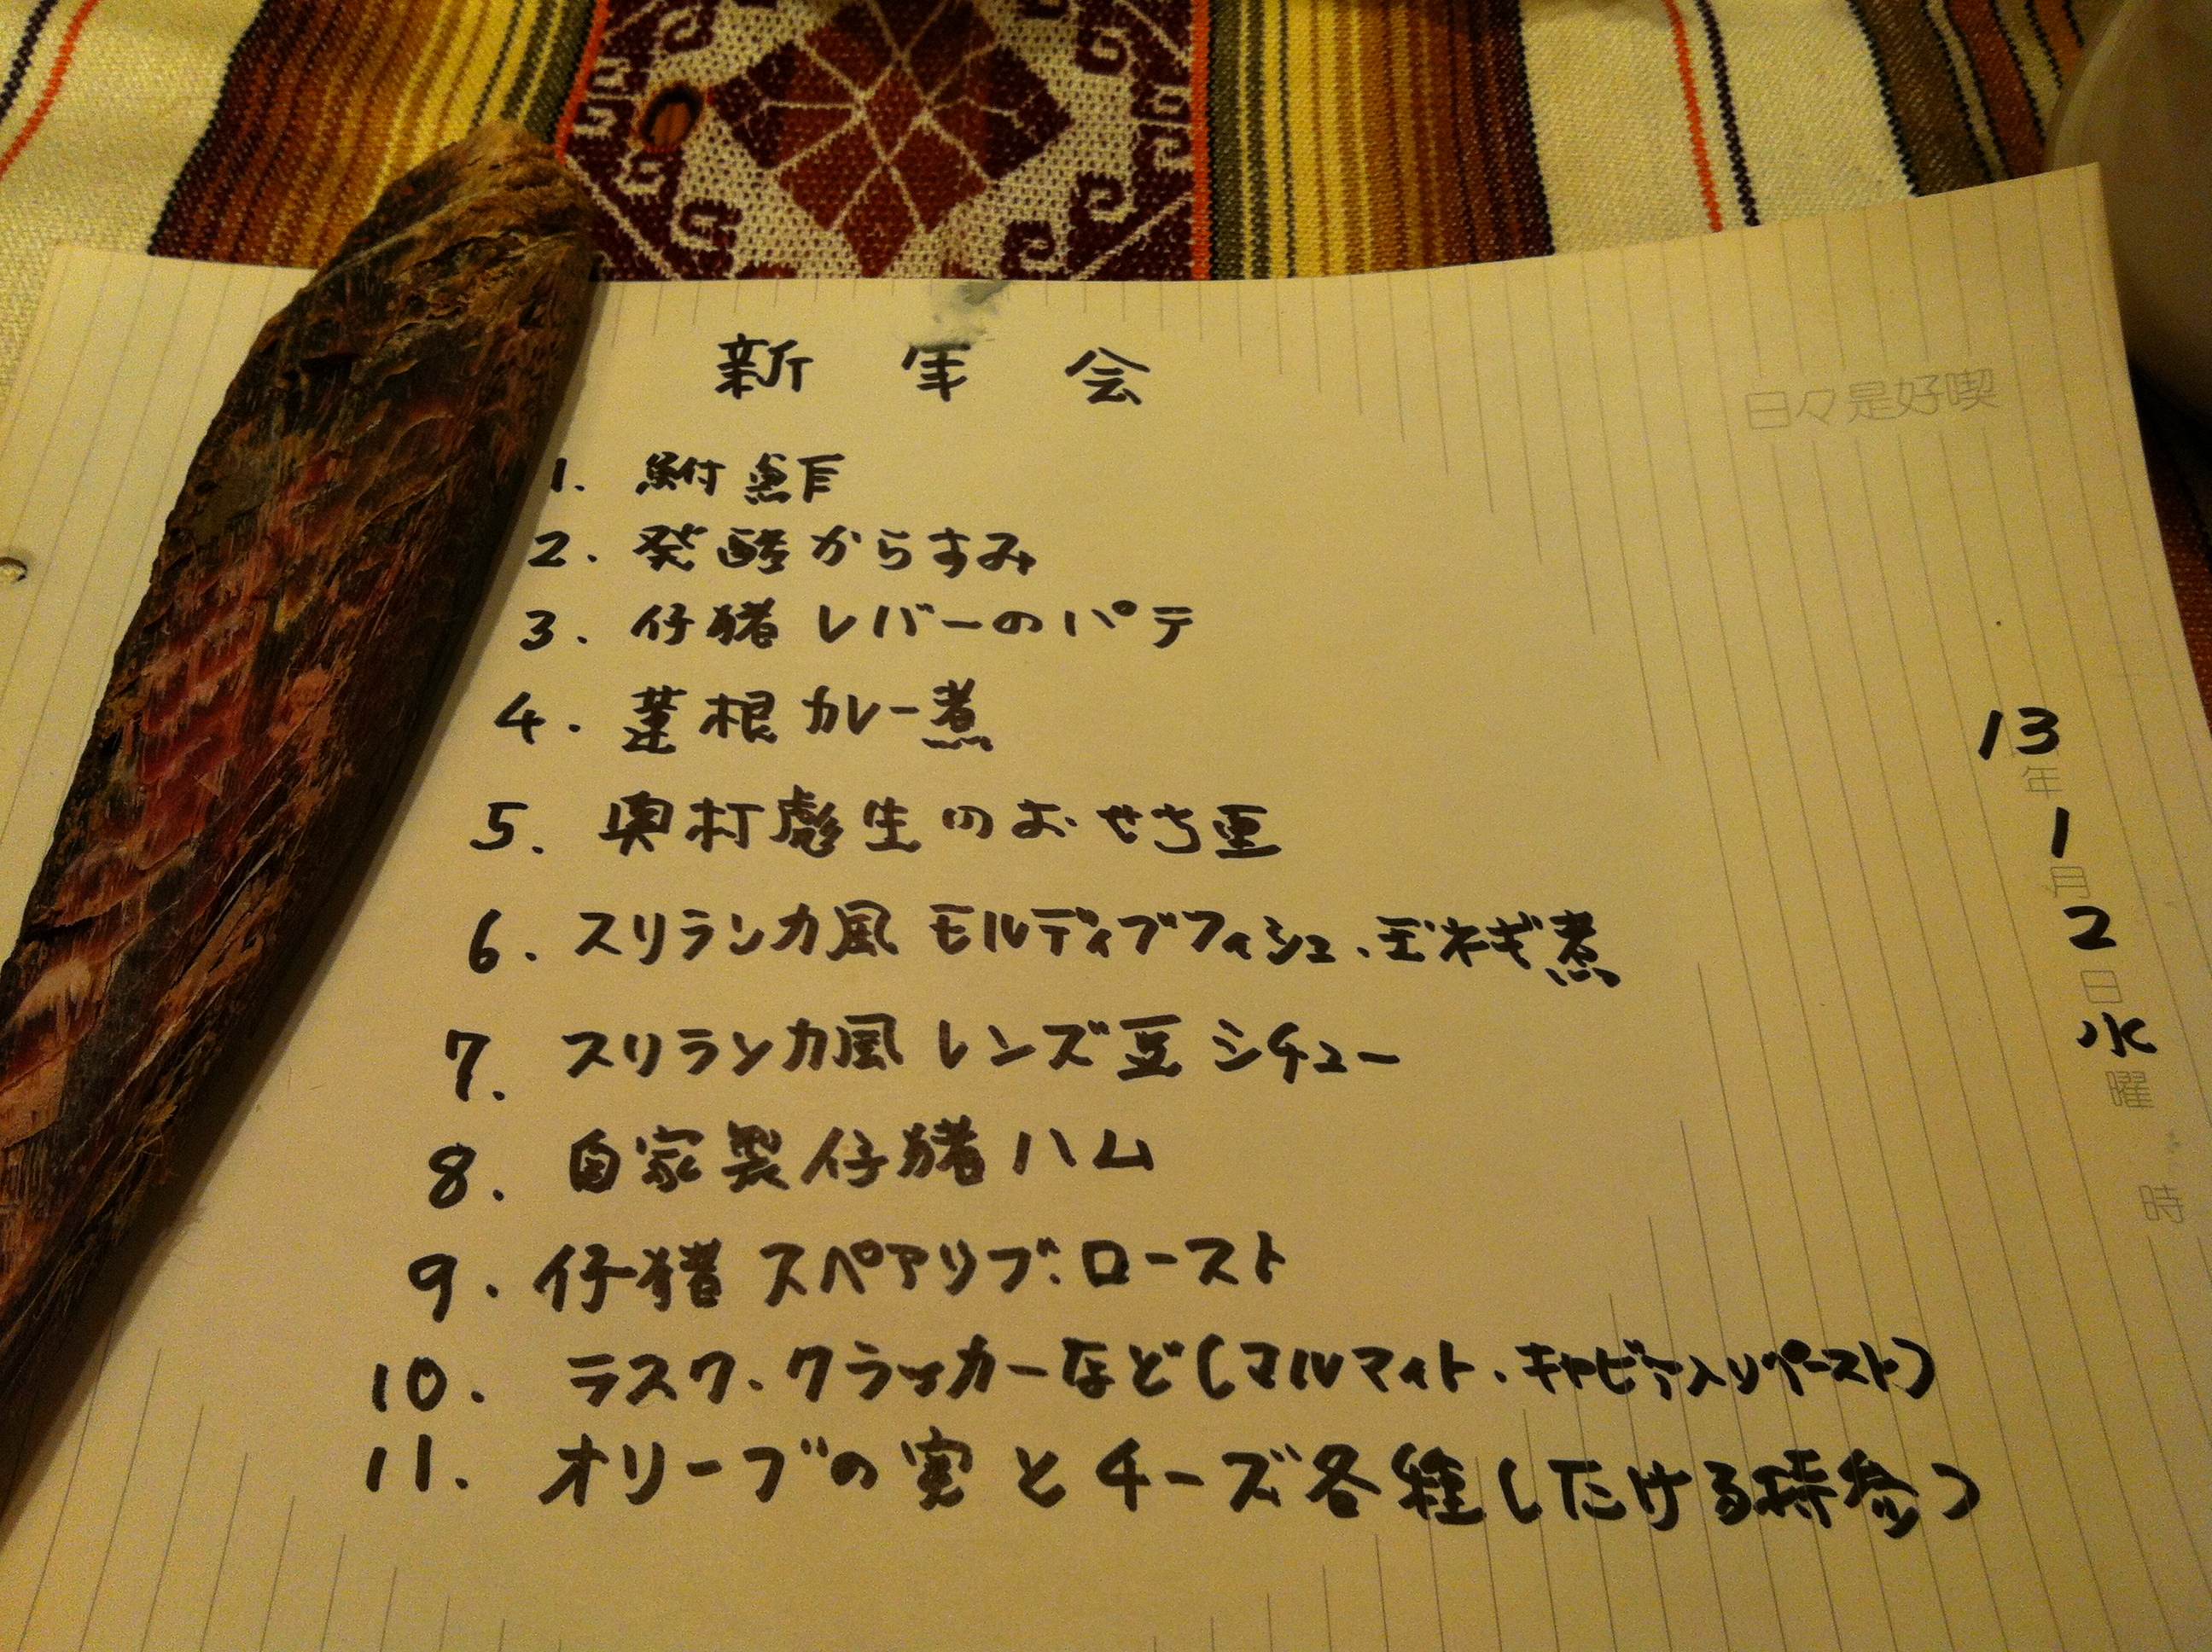 新年会
日々是好喫
1. 鮒鮨
2. 発酵からすみ
3. 仔猪レバーのパテ
4. 蓮根カレー煮
5. 奥村彪生のおせち重
6. スリランカ風 モルディブフィシュ、玉ネギ煮
7. スリランカ風 レンズ豆シチュー
8. 自家製仔猪ハム
9. 仔猪スペアリブ.ロースト
10. ラスク、クラッカーなど(マルマイト、キャビア入りペースト)
11. オリーブの実とチーズ各種(たける持参)
13
年
1
月
2
日
水
曜
時